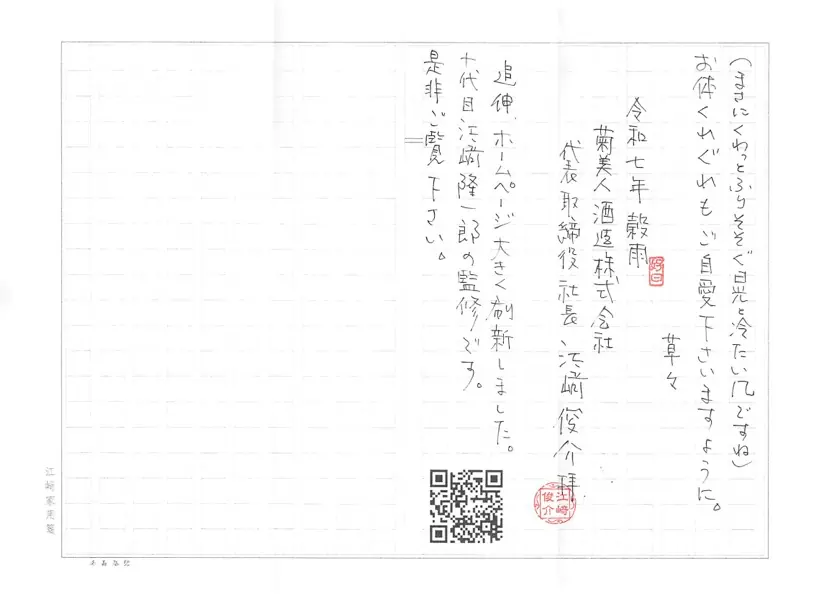 (まさにくわっとふりそそぐ日光と冷たい風ですね)
お体くれぐれもご自愛下さいますように。
草々
令和七年 穀雨
菊美人酒造株式会社
代表取締役 社長 江﨑俊介 拝
江﨑俊介
追伸 ホームページ大きく刷新しました。
十代目江﨑隆一郎の監修です。
是非ご覧下さい。
江﨑家用箋